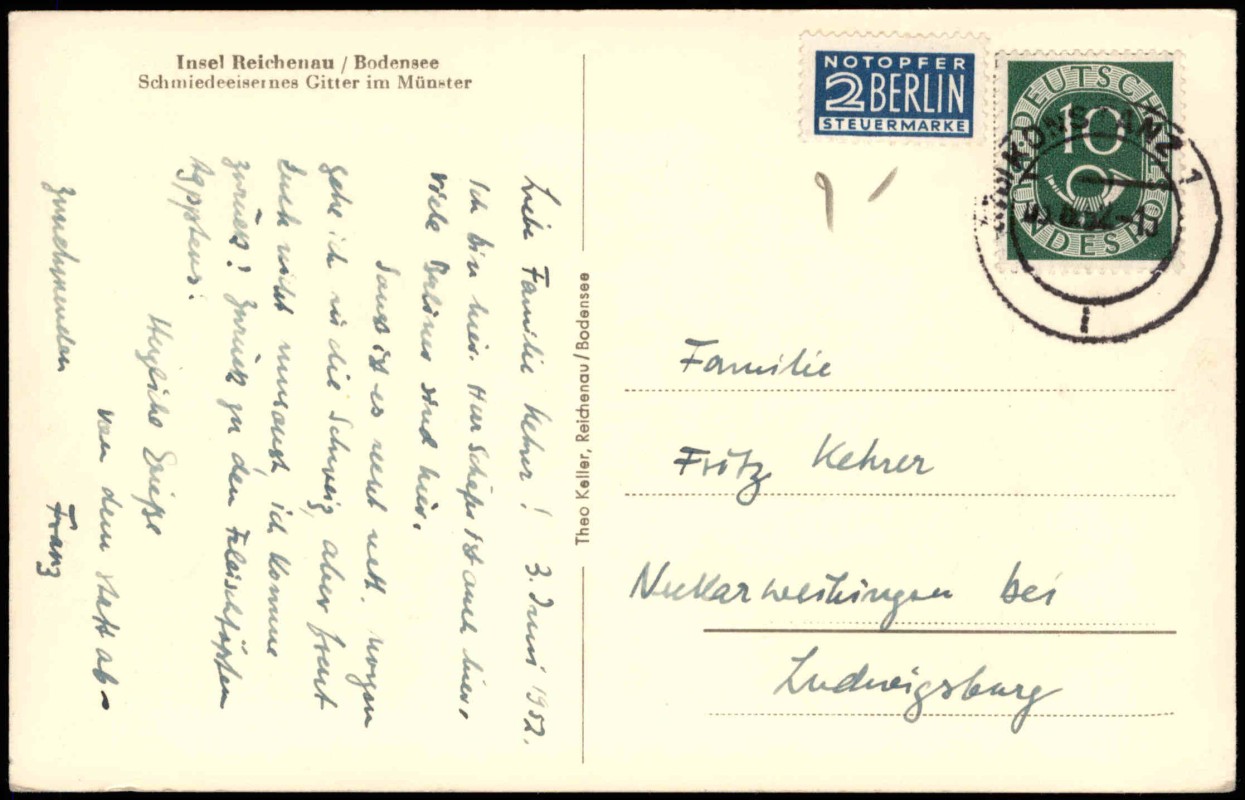 Insel Reichenau / Bodensee
Schmiedeeisernes Gitter im Münster
Liebe Familie Kehrer! 3. Juni 1952.
Ich bin hier. Herr Schöps ist auch hier,
viele Balinesen sind hier.
Sonst ist es recht nett. Morgen
gehe ich in die Schweiz, aber freut
Euch nicht umsonst ich komme
zurück! Zurück zu den Fleischtöpfen
Ägyptens!
Herzliche Grüße
von dem stets ab-
zunehmenden Franz
Theo Keller, Reichenau/Bodensee
NOTOPFER
2 BERLIN
STEUERMARKE
DEUTSCHE
10
BUNDESPOST
KONSTANZ 1
Familie
Fritz Kehrer
Neckarweihingen bei
Ludwigsburg